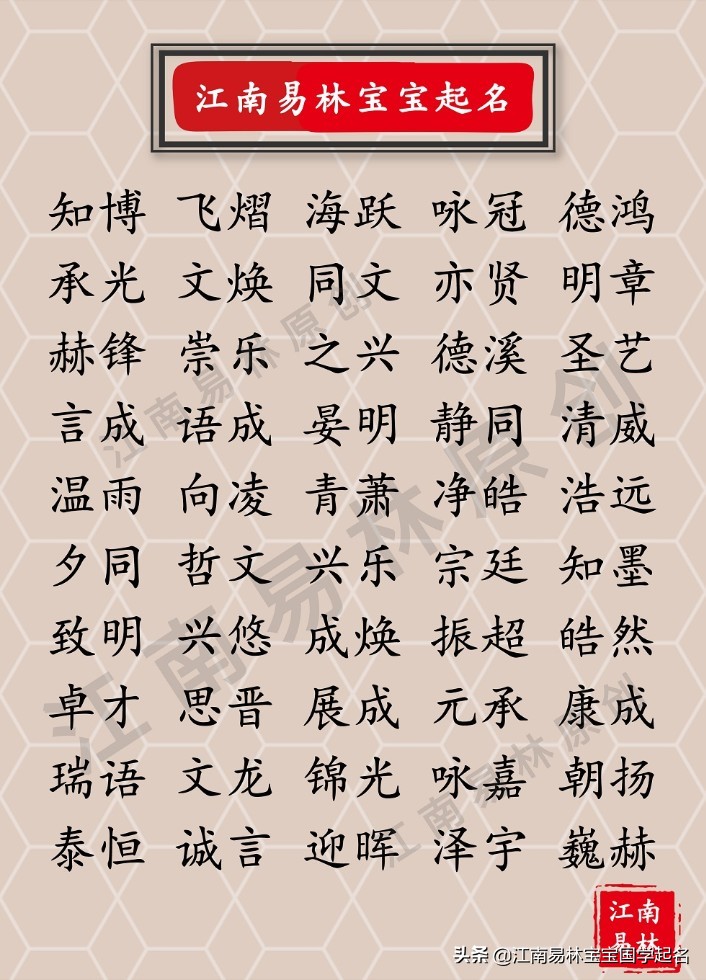 江南易林宝宝起名
知博 飞熠 海跃 咏冠 德鸿
承光 文焕 同文 亦贤 明章
赫锋 崇乐 之兴 德溪 圣艺
言成 语成 晏明 静同 清威
温雨 向凌 青萧 净皓 浩远
夕同 哲文 兴乐 宗廷 知墨
致明 兴悠 成焕 振超 皓然
卓才 思晋 展成 元承 康成
瑞语 文龙 锦光 咏嘉 朝扬
泰恒 诚言 迎晖 泽宇 巍赫
江南易林原创
江南易林原创
江南易林原创
江南
易林
头条 @江南易林宝宝国学起名